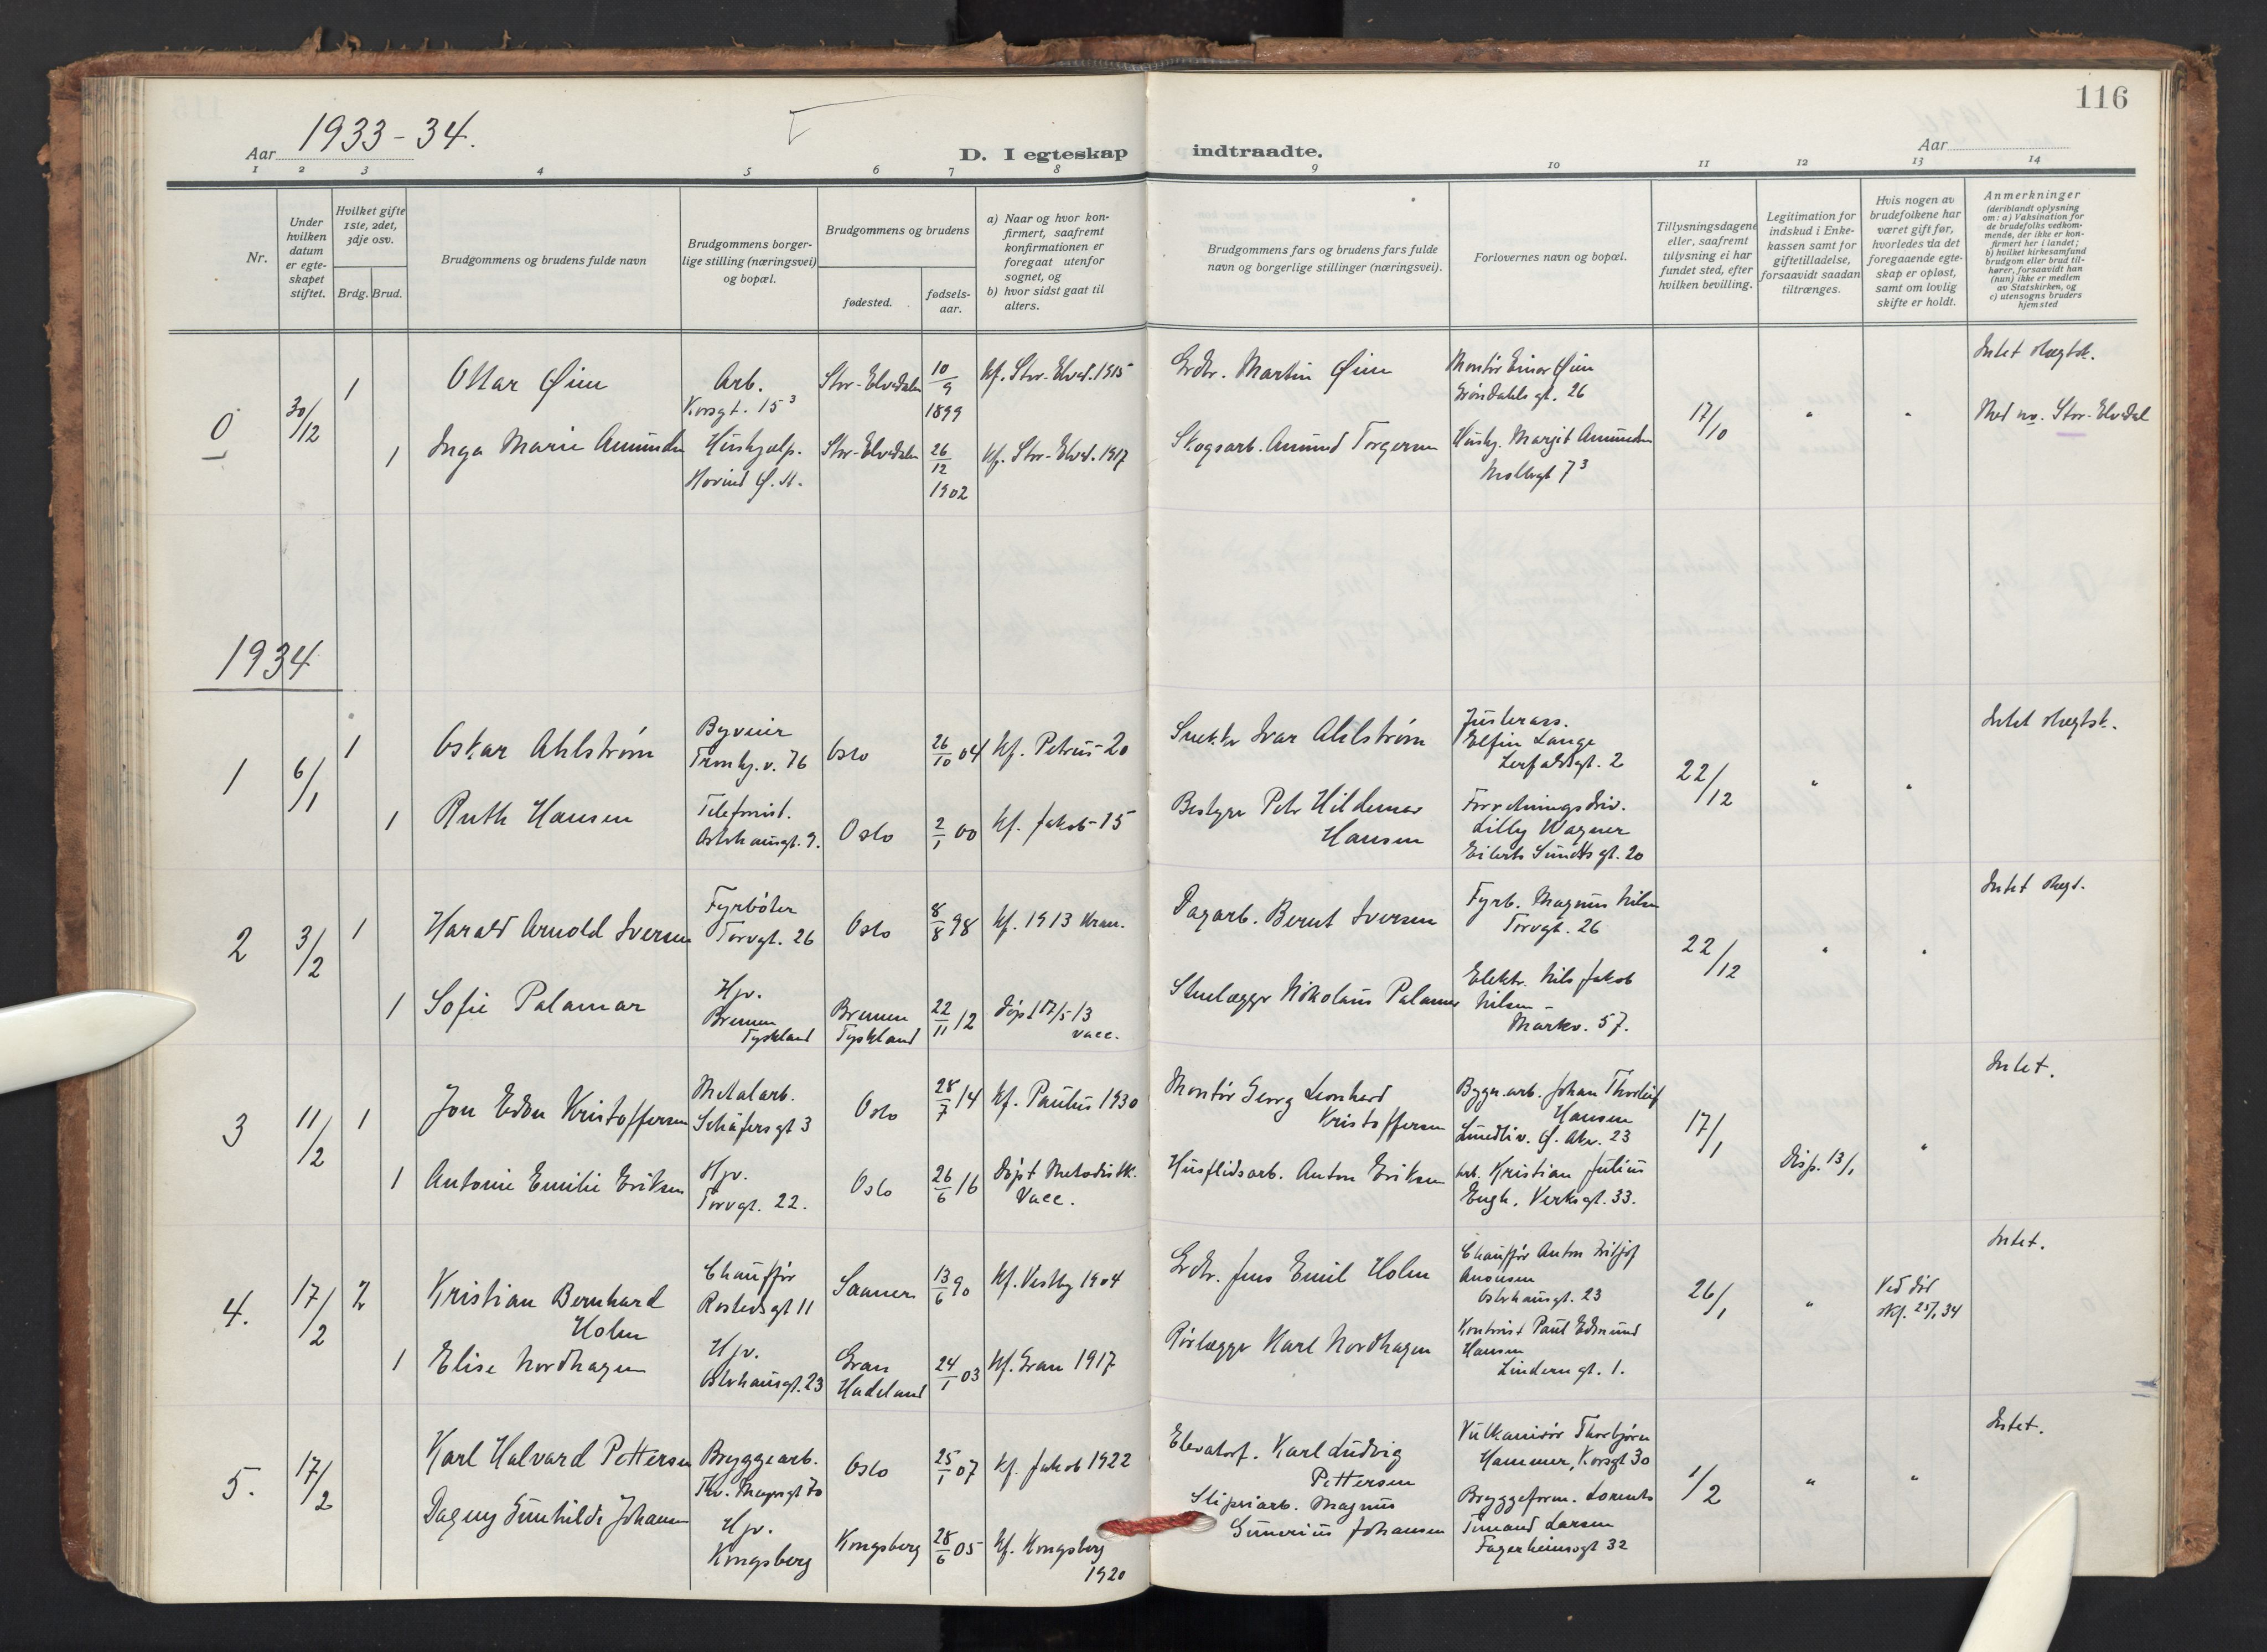 116
Aar 1933-34.
D. I egteskap indtraadte.
Aar
1 2 3 4 5 6 7 8 9 10 11 12 13 14
Nr.
Under
hvilken
datum
er egte-
skapet
stiftet.
Hvilket gifte
1ste, 2det,
3dje osv.
Brdg. Brud.
Brudgommens og brudens fulde navn
Brudgommens borger-
lige stilling (næringsvei)
og bopæl.
Brudgommens og brudens
fødested.
fødsels-
aar.
a) Naar og hvor kon-
firmert, saafremt
konfirmationen er
foregaat utenfor
sognet, og
b) hvor sidst gaat til
alters.
Brudgommens fars og brudens fars fulde
navn og borgerlige stillinger (næringsvei).
Forlovernes navn og bopæl.
Tillysningsdagene
eller, saafremt
tillysning ei har
fundet sted, efter
hvilken bevilling.
Legitimation for
indskud i Enke-
kassen samt for
giftetilladelse,
forsaavidt saadan
tiltrænges.
Hvis nogen av
brudefolkene har
været gift før,
hvorledes da det
foregaaende egte-
skap er opløst,
samt om lovlig
skifte er holdt.
Anmerkninger
(deriblandt oplysning
om: a) Vaksination for
de brudefolks vedkom-
mende, der ikke er kon-
firmert her i landet;
b) hvilket kirkesamfund
brudgom eller brud til-
hører, forsaavidt han
(hun) ikke er medlem
av Statskirken, og
c) utensogns bruders
hjemsted
0
30/12
1
Ottar Øien
Arb.
Korsgt. 15³
Stor-Elvedalen
10/9
1899
kf. Stor-Elved. 1915
Grdbr. Martin Øien
Montør Einar Øien
Grøndahls gt. 26
17/10
"
"
Intet slegtsk.
Med nr. Stor-Elvedal
1
Inga Marie Amundsen
Hushjelp.
Hovind Ø. A.
Stor-Elvedalen
26/12
1902
kf. Stor-Elved. 1917
Skogsarb. Amund Torgersen
Hushj. Margit Amundsen
Møllergt 7³
1934
1
6/1
1
Oskar Ahlstrøm
Tronhj. v. 76
Oslo
26/10 04
kf. Petrus 20
Snekker Ivar Ahlstrøm
Elfin Lange
2
22/12
"
"
Intet slegtsk.
1
Ruth Hansen
Telefonist.
Osterhausgt. 9.
Oslo
2/1 00
kf. Jakob 15
Bestyrer Petr Hildemar
Hansen
Forretningsdriv.
Lilly Wagner
Eilerts Sundts gt. 20
2
3/2
1
Harald Arnold Iversen
Fyrbøter
Torvgt. 26
Oslo
8/8 98
kf. 1913
Dagarb. Bernt Iversen
Fyrb. Magnus Nilsen
Torvgt. 26
22/12
"
"
Intet slegt.
1
Sofie Palamar
Hjv.
Bremen
Tyskland
Bremen
Tyskland
22/11 12
Døpt 17/5 13
vacc.
Nikolaus Palamar
Elektr. Nils Jakob
Nilsen -
Markv. 57.
3
11/2
1
Jon Edon Kristoffersen
Metalarb.
Schäfersgt 3
Oslo
28/7 14
kf. Paulus 1930
Montør Georg Leonhard
Kristoffersen
Bygn.arb. Johan Thorleif
Hansen
Lundliv. Ø. Ak. 23
17/1
Disp. 13/1
"
Intet.
1
Antonie Emilie Eriksen
Hjv.
Torvgt. 22.
Oslo
26/6 16
Døpt Metodistk.
Vacc.
Husflidsarb. Anton Eriksen
Arb. Kristian Julius
Engh. Verksgt. 33.
4.
17/2
2
Kristian Bernhard
Holm
Chauffør
Rostedsgt 11
Saaner
13/6 90
kf. Vestby 1904
Grdbr. Jens Emil Holm
Chauffør Anton Fritjof
Osterhausgt. 23
26/1
"
Ved død
skf. 25/1 34
Intet.
1
Elise Nordhagen
Hjv.
Osterhausgt. 23
Gran
Hadeland
24/1 03
kf. Gran 1917
Rørlægger Karl Nordhagen
Kontorist Paul Edmund
Hansen
Linderngt. 1.
5.
17/2
Karl Halvard Pettersen
Bryggearb.
Oslo
25/1 07
kf. Jakob 1922
Elevatorf. Karl Ludvig
Pettersen
Vulkanisør Thorbjørn
Hammer, Korsgt 30
1/2
"
"
Intet.
Dagny Gunhilde Johansen
Hjv.
Kongsberg
Kongsberg
28/6 05
kf. Kongsberg
1920
Sliperiarb. Magnus
Gunerius Johansen
Bryggeform. Lorents
Larsen
Fagerheimsgt 32